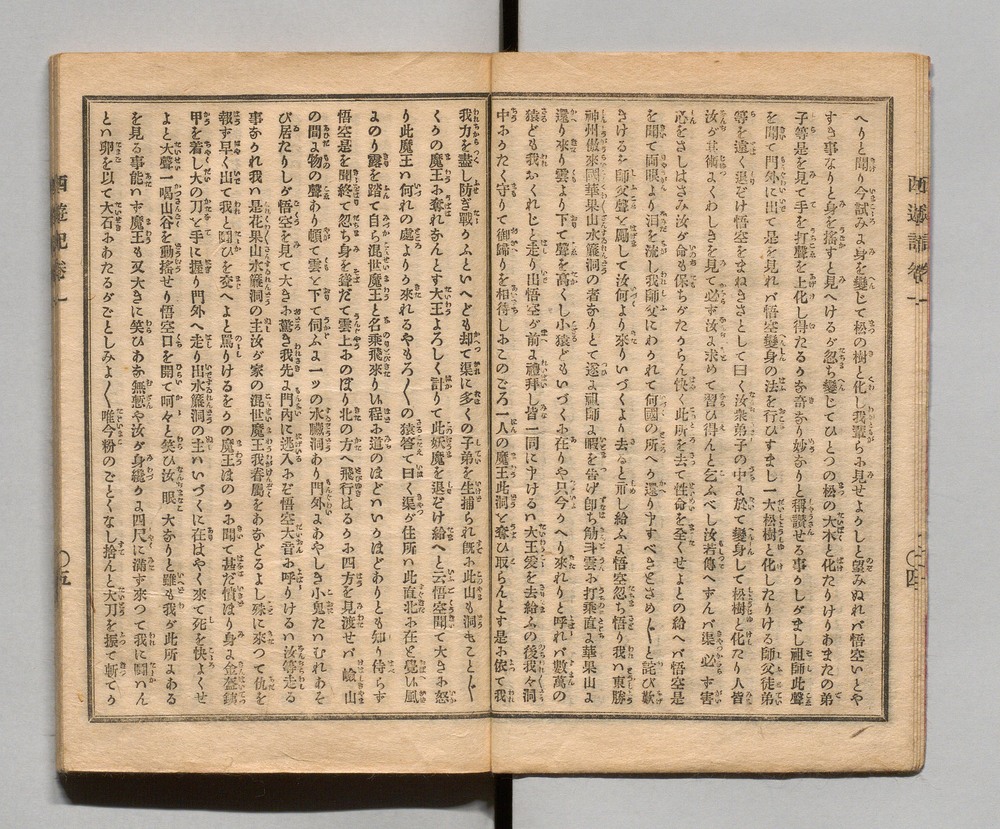 西遊記卷一 〇四
へりと聞り今試みに身を變じて松の樹と化し我輩らに見せよかしと望みぬれバ悟空いとや
すき事なりと身を搖すと見へけるが忽ち變じてひとつの松の大木と化たりけりあまたの弟
子等是を見て手を打聲を上化し得たるかな奇なり妙なりと稱讃せる事かしがまし祖師此聲
を聞て門外に出て是を見れバ悟空變身の法を行ひすまし一大松樹と化したりける師父徒弟
等を遠く退ぞけ悟空をまねきさとして曰く汝衆弟子の中に於て變身して松樹と化たり人皆
汝が其術にくわしきを見て必ず汝に求めて習ひ得んと乞ふべし汝若傳へずんバ渠必ず害
心をさしはさみ汝が命も保ちがたからん快く此所を去て性命を全くせよとの給へバ悟空是
を聞て兩眼より泪を流し我師父にわかれて何國の所へか還り申すべきとさめ〴〵と詫び歎
きけるを師父聲を勵して汝何より來りいづくより去ると示し給ふに悟空忽ち悟り我ハ東勝
神州傲來國華果山水簾洞の者なりとて遂に祖師に暇を告げ即ち觔斗雲に打乘直に華果山に
還り來り雲より下て聲を高くし小猿どもいづくに在りや只今かへり來れりと呼れバ數萬の
猿ども我おくれじと走り出悟空が前に禮拜し皆一同に申けるハ大王爰を去給ふの後我々洞
中にかたく守りて御歸りを相待しにこのごろ一人の魔王此洞を奪ひ取らんとす是に依て我
我力を盡し防ぎ戰かふといへども却て渠に多くの子弟を生捕られ既に此山も洞もこと〴〵
くかの魔王に奪れなんとす大王よろしく計りて此妖魔を退ぞけ給へと云悟空聞て大きに怒
り此魔王ハ何れの處より來れるやもろ〳〵の猿答て曰く渠が住所ハ此直北に在と覺しハ風
にのり霧を踏て自ら混世魔王と名乘飛來りハ程に道のほどハいかほどありとも知り侍らず
悟空是を聞終て忽ち身を聳だて雲上にのぼり北の方へ飛行はるかに四方を見渡せバ嶮山
の間に物の聲あり頓て雲を下て伺ふに一ツの水臓洞あり門外にあやしき小鬼たハむれあそ
び居たりしが悟空を見て大きに驚き我先に門内に逃入なぞ悟空大音に呼りけるハ汝等走る
事なかれ我ハ是花果山水簾洞の主汝が家の混世魔王我眷屬をあなどるよし殊に來つて仇を
報す早く出て我と鬪ひを交へよと罵りけるをかの魔王ほのかに聞て甚だ憤ほり身に金盔鐵
甲を着し大の刀を手に握り門外へ走り出水簾洞の主ハいづくに在はやく來て死を快よくせ
よと大聲一喝山谷を動搖せり悟空口を開て呵々と笑ひ汝眼大なりと雖も我が此所にある
を見る事能ハず魔王も又大きに笑ひあな無慙や汝が身纔かに四尺に滿ず來つて我に鬪ハん
とハ卵を以て大石にあたるがごとしみよ〳〵唯今粉のごとくなし捨んと大刀を振て斬てか
西遊記卷一 〇五